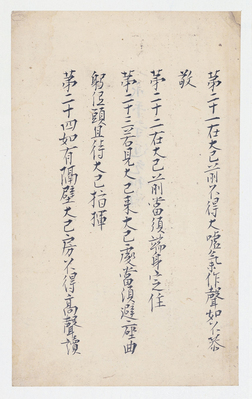 第二十一在大己前不得大噫氣作聲如不恭
敬
第二十二在大己前當須端身定住
第二十三若見大己來大己處當須避一壁曲
躬低頭且待大己指揮
第二十四如有隔壁大己房不得高聲讀